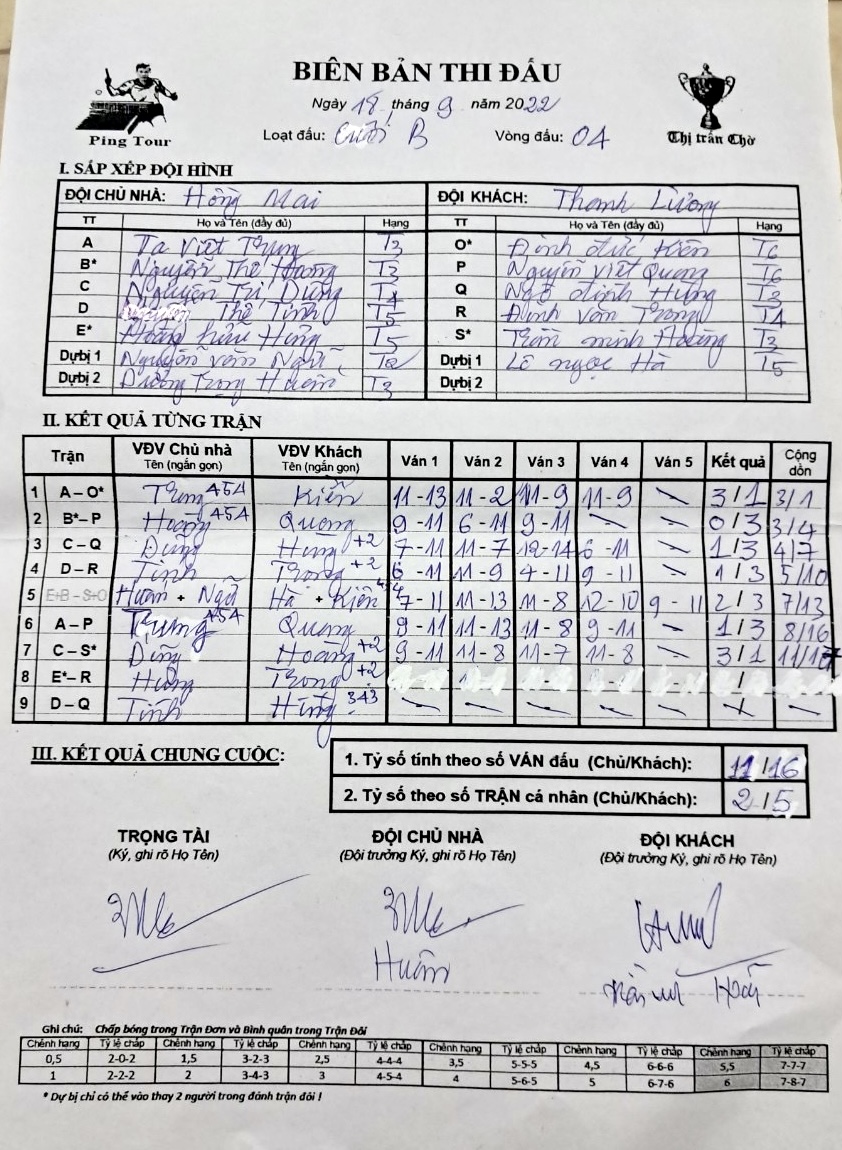 BIÊN BẢN THI ĐẤU
Ngày 18 tháng 9 năm 2022
Loạt đấu: B Vòng đấu: 04
Ping Tour
Thị trấn Chờ
I. SẮP XẾP ĐỘI HÌNH
ĐỘI CHỦ NHÀ: Hồng Mai ĐỘI KHÁCH: Thanh Lương
TT Họ và Tên (đầy đủ) Hạng TT Họ và Tên (đầy đủ) Hạng
A Tạ Viết Trung T3 O* Đinh đức Kiên T6
B* Nguyễn Thế Hoàng T3 P Nguyễn Viết Quang T6
C Nguyễn Trí Dũng T4 Q Ngô định Hưng T3
D Thế Tính T5 R Đinh văn Trong T4
E* Hoàng hữu Hưng T5 S* Trần minh Hoàng T3
Dự bị 1 Nguyễn văn Ngữ T2 Dự bị 1 Lê ngọc Hà T5
Dự bị 2 Dương Trọng Huấn T3 Dự bị 2
II. KẾT QUẢ TỪNG TRẬN
Trận VĐV Chủ nhà Tên (ngắn gọn) VĐV Khách Tên (ngắn gọn) Ván 1 Ván 2 Ván 3 Ván 4 Ván 5 Kết quả Cộng dồn
1 A – O* Trung 454 Kiên 11-13 11-2 11-9 11-9 3/1 3/1
2 B* – P Hoàng 454 Quang 9-11 6-11 9-11 0/3 3/4
3 C – Q Dũng Hưng +2 7-11 11-7 12-14 6-11 1/3 4/7
4 D – R Tính Trong +2 6-11 11-9 4-11 9-11 1/3 5/10
5 E+B – S+O Huấn + Ngữ Hà + Kiên 454 7-11 11-13 11-8 12-10 9-11 2/3 7/13
6 A – P Trung 454 Quang 9-11 11-13 11-8 9-11 1/3 8/16
7 C – S* Dũng Hoàng +2 9-11 11-8 11-7 11-8 3/1 11/17
8 E* – R Hưng Trong +2 /
9 D – Q Tính Hưng 343
III. KẾT QUẢ CHUNG CUỘC:
1. Tỷ số tính theo số VÁN đấu (Chủ/Khách): 11/16
2. Tỷ số theo số TRẬN cá nhân (Chủ/Khách): 2/5
TRỌNG TÀI ĐỘI CHỦ NHÀ ĐỘI KHÁCH
(Ký, ghi rõ Họ Tên) (Đội trưởng Ký, ghi rõ Họ Tên) (Đội trưởng Ký, ghi rõ Họ Tên)
Huấn
Ghi chú: Chấp bóng trong Trận Đơn và Bình quân trong Trận Đôi
Chênh hạng Tỷ lệ chấp Chênh hạng Tỷ lệ chấp Chênh hạng Tỷ lệ chấp Chênh hạng Tỷ lệ chấp Chênh hạng Tỷ lệ chấp Chênh hạng Tỷ lệ chấp
0,5 2-0-2 1,5 3-2-3 2,5 4-4-4 3,5 5-5-5 4,5 6-6-6 5,5 7-7-7
1 2-2-2 2 3-4-3 3 4-5-4 4 5-6-5 5 6-7-6 6 7-8-7
* Dự bị chỉ có thể vào thay 2 người trong đánh trận đôi !